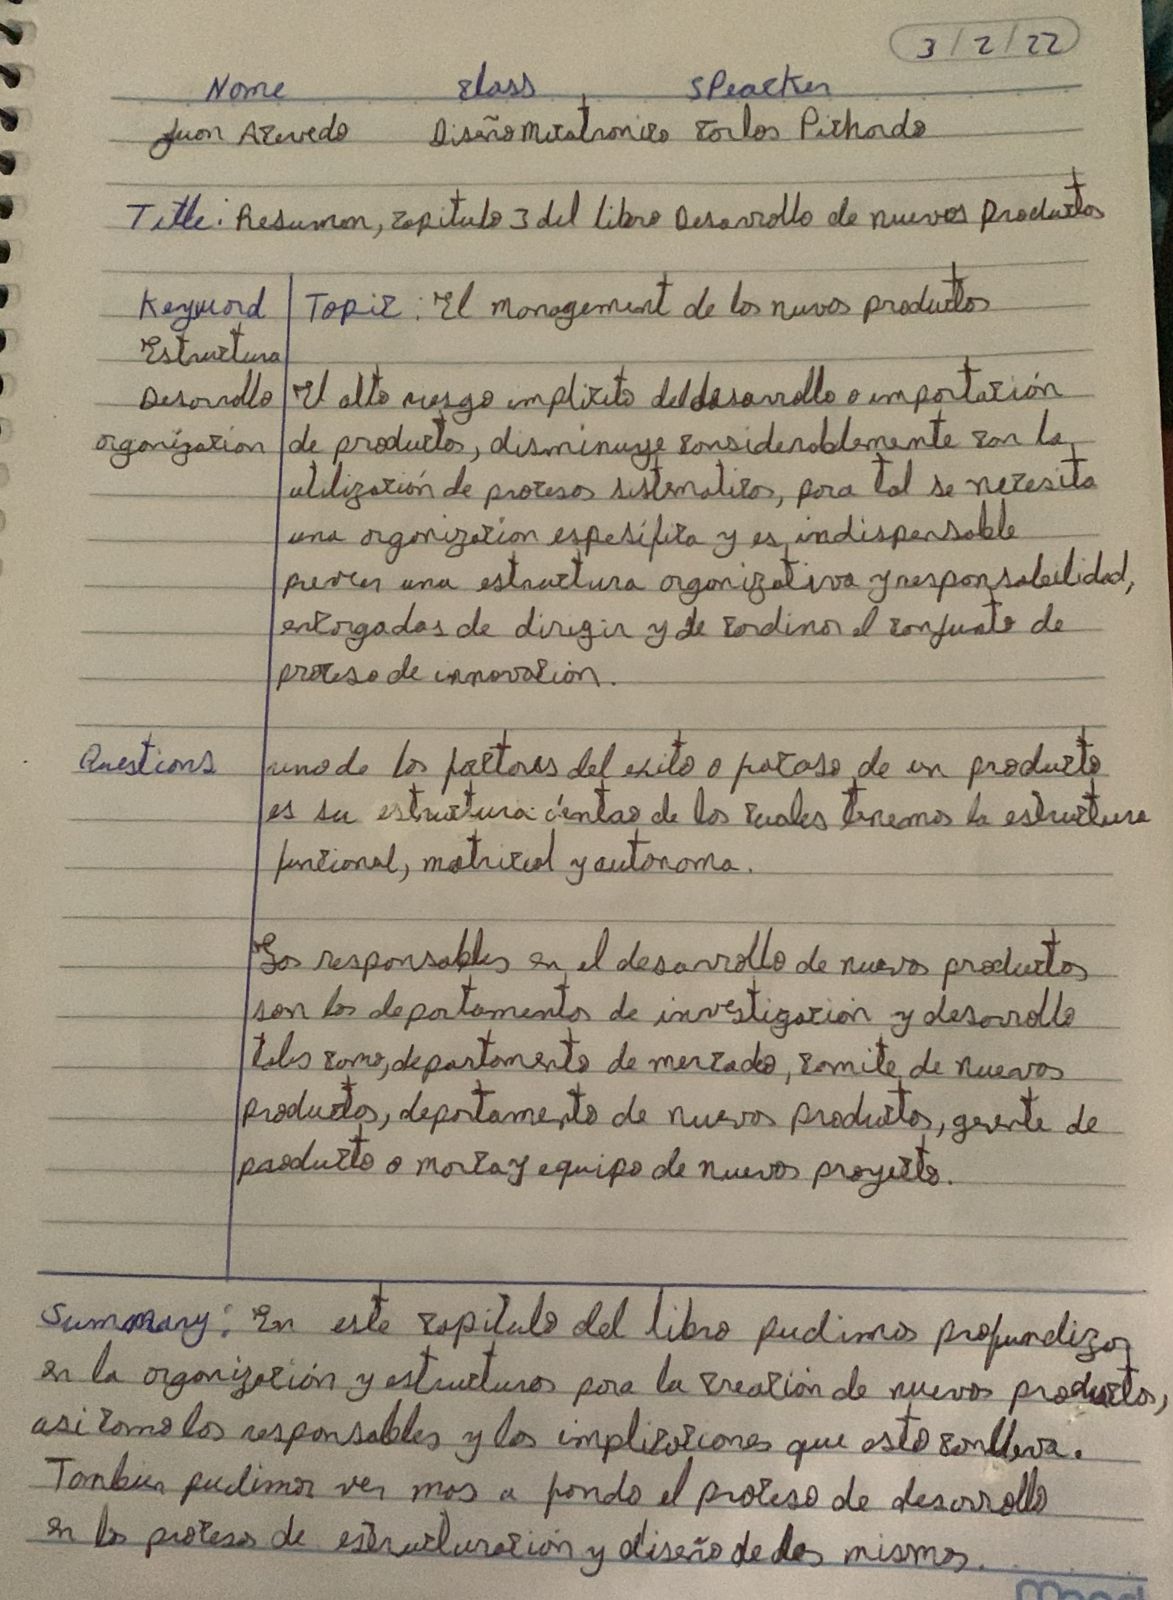 3/2/22
Nome Class Speacker
Juan Acevedo Diseño Mecatronico Carlos Pichardo
Title: Resumen, capitulo 3 del libro Desarrollo de nuevos productos
Keyword Topic: El management de los nuvos productos
Estructura
Desarrollo El alto riesgo implicito del desarrollo o importación
organization de productos, disminuye considerablemente con la
utilización de procesos sistematicos, para tal se necesita
una organización espesífica y es indispensable
preveer una estructura organizativa y responsabilidad,
encargadas de dirigir y de cordinar el conjunto de
proceso de innovación.
Questions uno de los factores del exito o fracaso de un producto
es su estructura: dentro de los cuales tenemos la estructura
funcional, matricial y autonoma.
Los responsables en el desarrollo de nuevos productos
son los departamentos de investigación y desarrollo
tales como, departamento de mercado, comite de nuevos
productos, departamento de nuevos productos, gerente de
producto o marca y equipo de nuevos proyecto.
Summary: En este capitulo del libro pudimos profundizar
en la organización y estructuras para la creación de nuevos productos,
asi como los responsables y las implicaciones que esto conlleva.
Tambien pudimos ver mas a fondo el proceso de desarrollo
en los procesos de estructuración y diseño de los mismos.